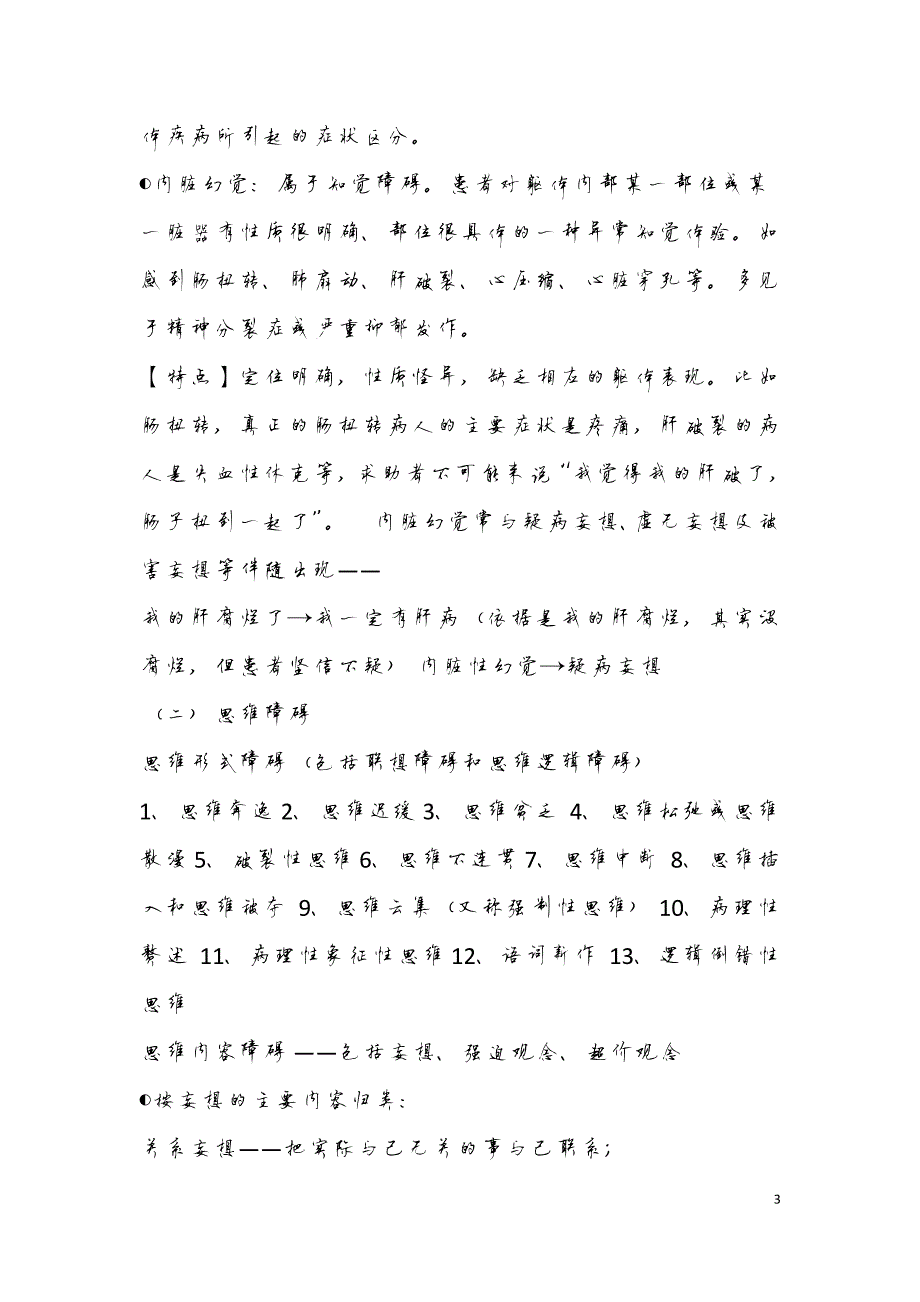 体疾病所引起的症状区分。
◐内脏幻觉：属于知觉障碍。患者对躯体内部某一部位或某
一脏器有性质很明确、部位很具体的一种异常知觉体验。如
感到肠扭转、肺扇动、肝破裂、心压缩、心脏穿孔等。多见
于精神分裂症或严重抑郁发作。
【特点】定位明确，性质怪异，缺乏相应的躯体表现。比如
肠扭转，真正的肠扭转病人的主要症状是疼痛，肝破裂的病
人是失血性休克等，求助者不可能来说“我觉得我的肝破了，
肠子扭到一起了”。 内脏幻觉常与疑病妄想、虚无妄想及被
害妄想等伴随出现——
我的肝腐烂了→我一定有肝病（依据是我的肝腐烂，其实没
腐烂，但患者坚信不疑） 内脏性幻觉→疑病妄想
（二） 思维障碍
思维形式障碍（包括联想障碍和思维逻辑障碍）
1、思维奔逸2、思维迟缓3、思维贫乏 4、思维松弛或思维
散漫5、破裂性思维6、思维不连贯7、思维中断 8、思维插
入和思维被夺 9、思维云集（又称强制性思维） 10、病理性
赘述 11、病理性象征性思维12、语词新作 13、逻辑倒错性
思维
思维内容障碍 ——包括妄想、强迫观念、超价观念
◐按妄想的主要内容归类：
关系妄想——把实际与己无关的事与己联系；
3